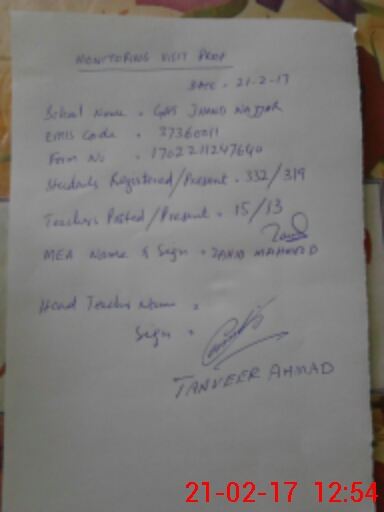 MONITORING VISIT PROF
DATE = 21-2-17
School Name = GPS JNANO NAJJAR
EMIS Code = 37360011
Form No = 1702211247640
Students Registered/Present = 332/319
Teachers Posted/Present = 15/13
MEA Name & Sign = MAHMOOD
Head Teacher Name =
Sign =
TANVEER AHMAD
21-02-17 12:54